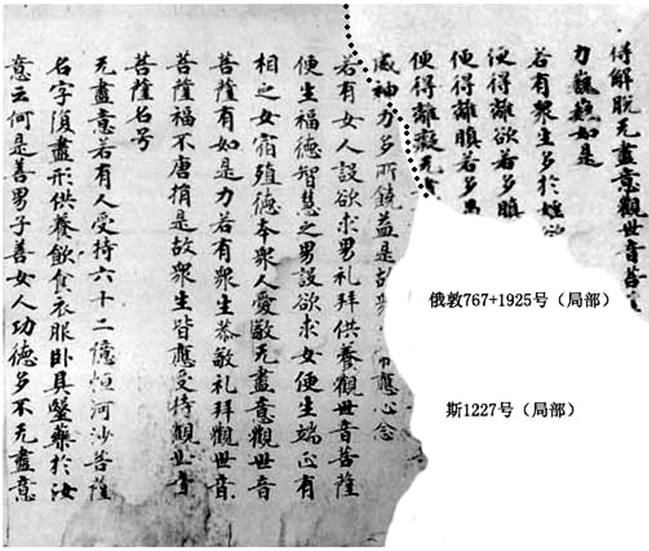 得解脱无盡意觀世音菩
力巍巍如是
若有衆生多於婬欲
便得離欲若多瞋
便得離瞋若多愚
便得離癡无
威神力多所饒益是故衆應心念
若有女人設欲求男礼拜供養觀世音菩薩
便生福德智慧之男設欲求女便生端正有
相之女宿殖德本衆人愛敬无盡意觀世音
菩薩有如是力若有衆生恭敬礼拜觀世音
菩薩福不唐捐是故衆生皆應受持觀世音
菩薩名号
无盡意若有人受持六十二億恒河沙菩薩
名字復盡形供養飲食衣服卧具醫藥於汝
意云何是善男子善女人功德多不无盡意
俄敦767+1925号（局部）
斯1227号（局部）